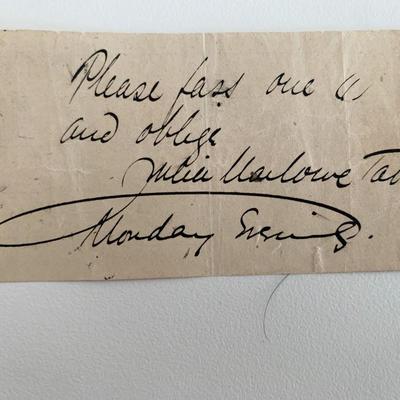 Please pass one (1)
and oblige
Julia Marlowe Tab
Monday Evening.